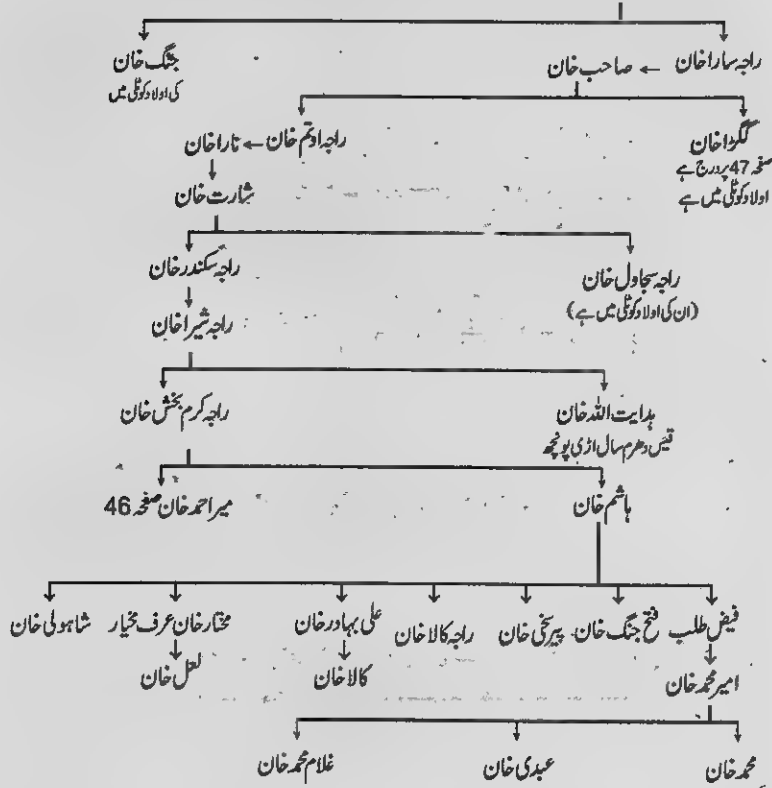 راجہ سارا خان ← صاحب خان
جنگ خان
کی اولاد کوٹلی میں
گکڑا خان
صفحہ 47 پر درج ہے
اولاد کوٹلی میں ہے
راجہ اوتم خان ← تارا خان
شارت خان
راجہ سجاول خان
(ان کی اولاد کوٹلی میں ہے)
راجہ سکندر خان
راجہ شیرا خان
ہدایت اللہ خان
دھرم سال اڑی پونچھ
راجہ کرم بخش خان
ہاشم خان
میر احمد خان صفحہ 46
فیض طلب
فتح جنگ خان
پیر سخی خان
راجہ کالا خان
علی بہادر خان
مختار خان عرف مخیار
شاہولی خان
امیر محمد خان
کالا خان
لعل خان
محمد خان
عبدی خان
غلام محمد خان